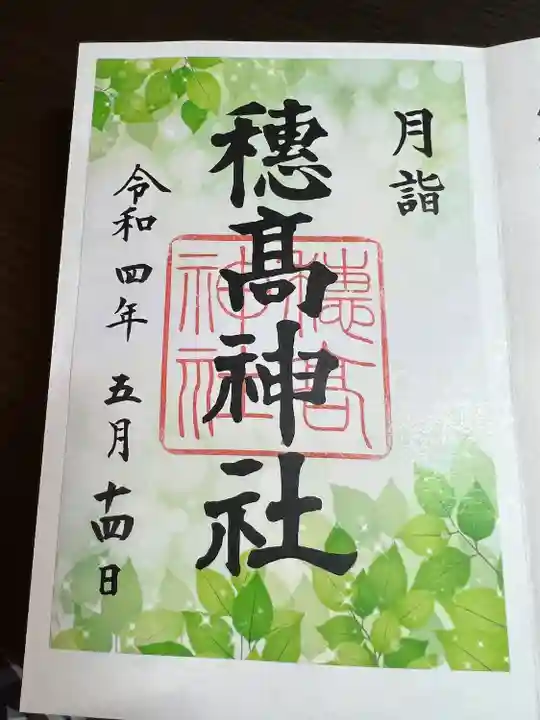 月詣
穂髙神社
穂髙神社
令和四年五月十四日